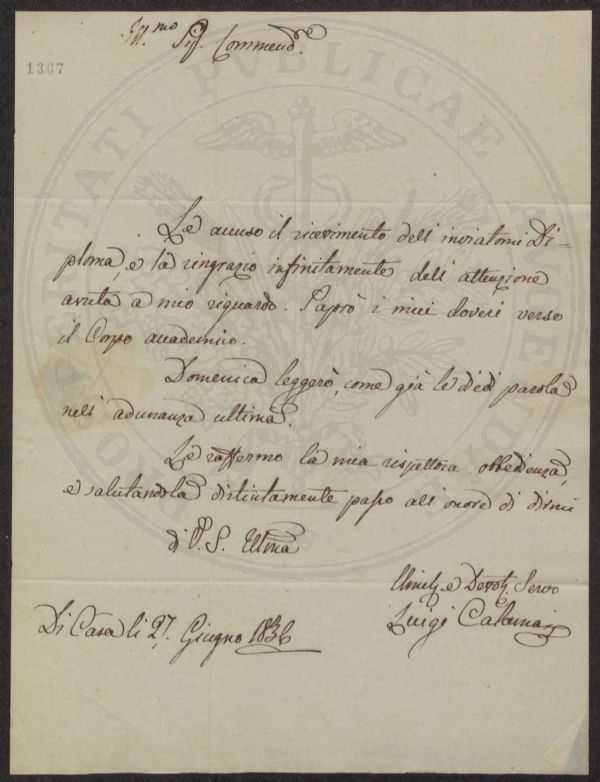 Ill.mo Sig. Commend.e
1367
Le accuso il ricevimento dell'inviatomi Di=
ploma, e la ringrazio infinitamente dell'attenzione
avuta a mio riguardo. Saprò i miei doveri verso
il Corpo accademico.
Domenica leggerò, come già le diedi parola
nell'adunanza ultima.
Le raffermo la mia rispettosa obbedienza,
e salutandola distintamente passo all'onore di dirmi
di V. S. Ill.ma
Umil. e Devot. Servo
Luigi
Di Casa li 27. Giugno 1836